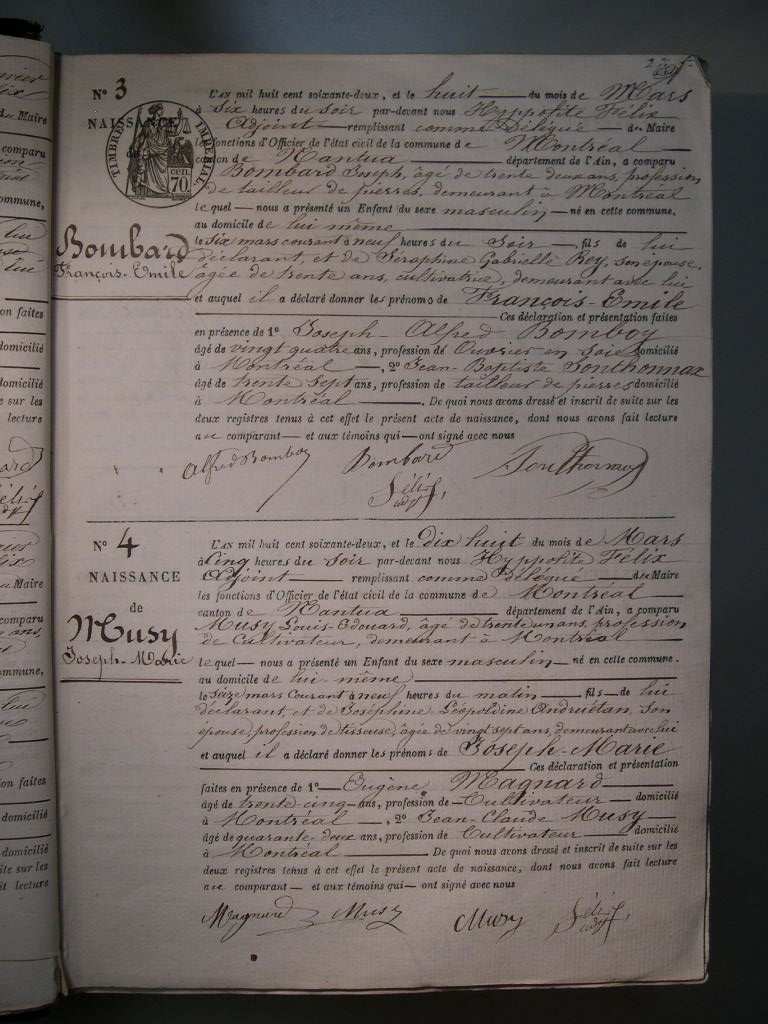 N° 3
NAISSANCE
de
TIMBRE IMPÉRIAL
70 cen.
Bombard
François-Emile
L'AN mil huit cent soixante-deux, et le huit du mois de Mars
à Six heures du Soir par-devant nous Hyppolite Félix
Adjoint remplissant comme Délégué de Maire
les fonctions d'Officier de l'état civil de la commune de Montréal
canton de Nantua département de l'Ain, a comparu
Bombard Joseph, âgé de trente deux ans, profession
de tailleur de pierres, demeurant à Montréal
lequel nous a présenté un Enfant du sexe masculin né en cette commune,
au domicile de lui même
le Six mars courant à neuf heures du Soir fils de lui
déclarant, et de Séraphine Gabrielle Rey, son épouse,
âgée de trente ans, cultivatrice, demeurant avec lui
et auquel il a déclaré donner les prénoms de François-Emile
Ces déclaration et présentation faites
en présence de 1° Joseph Alfred Bomboy
âgé de vingt quatre ans, profession de Ouvrier en Soie domicilié
à Montréal, 2° Jean-Baptiste Sonthonnax
âgé de trente sept ans, profession de tailleur de pierres domicilié
à Montréal. De quoi nous avons dressé et inscrit de suite sur les
deux registres tenus à cet effet le présent acte de naissance, dont nous avons fait lecture
au comparant et aux témoins qui ont signé avec nous
Alfred Bomboy Bombard Sonthonnax
Félix
adjt
N° 4
NAISSANCE
de
Musy
Joseph-Marie
L'AN mil huit cent soixante-deux, et le dix huit du mois de Mars
à Cinq heures du Soir par-devant nous Hyppolite Félix
Adjoint remplissant comme Délégué de Maire
les fonctions d'Officier de l'état civil de la commune de Montréal
canton de Nantua département de l'Ain, a comparu
Musy Louis-Edouard, âgé de trente un ans, profession
de Cultivateur, demeurant à Montréal
lequel nous a présenté un Enfant du sexe masculin né en cette commune.
au domicile de lui-même
le Seize mars Courant à neuf heures du matin fils de lui
déclarant, et de Joséphine Léopoldine Andruétan, Son
épouse, profession de tisseuse, âgée de vingt sept ans, demeurant avec lui
et auquel il a déclaré donner les prénoms de Joseph-Marie
Ces déclaration et présentation
faites en présence de 1° Eugène Magnard
âgé de trente-cinq ans, profession de Cultivateur domicilié
à Montréal, 2° Jean-Claude Musy
âgé de quarante-deux ans, profession de Cultivateur domicilié
à Montréal. De quoi nous avons dressé et inscrit de suite sur les
deux registres tenus à cet effet le présent acte de naissance, dont nous avons fait lecture
au comparant et aux témoins qui ont signé avec nous
Magnard Musy Musy Félix
adjt